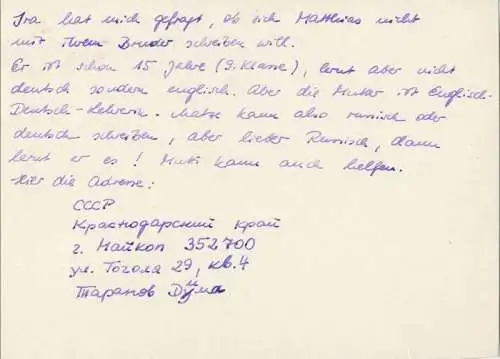 Ira hat mich gefragt, ob sich Matthias nicht
mit ihrem Bruder schreiben will.
Er ist schon 15 Jahre (9. Klasse), lernt aber nicht
deutsch sondern englisch. Aber die Mutter ist Englisch-
Deutsch-Lehrerin. Matze kann also russisch oder
deutsch schreiben, aber lieber Russisch, dann
lernt er es! Mutti kann auch helfen.
Hier die Adresse:
СССР
Краснодарский край
г. Майкоп 352700
ул. Гоголя 29, кв. 4
Таранов Дима